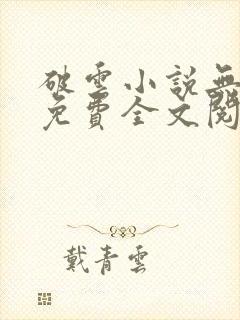 破雲小說無
免費全文閱
戴青雲